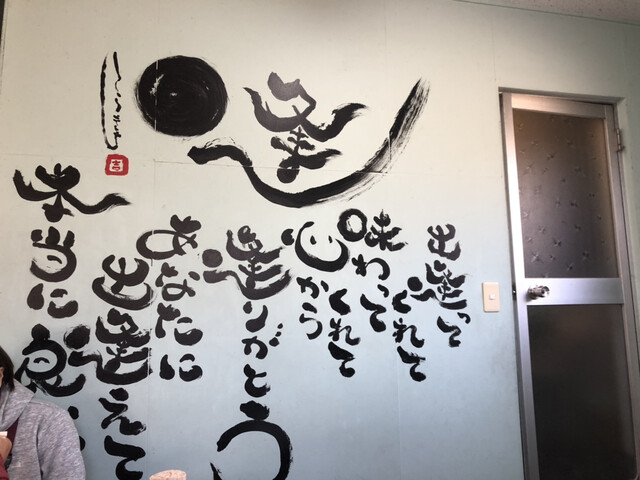 逢
出逢って
くれて
味わって
くれて
心から
逢りがとう
あなたに
出逢えて
本当に
吉